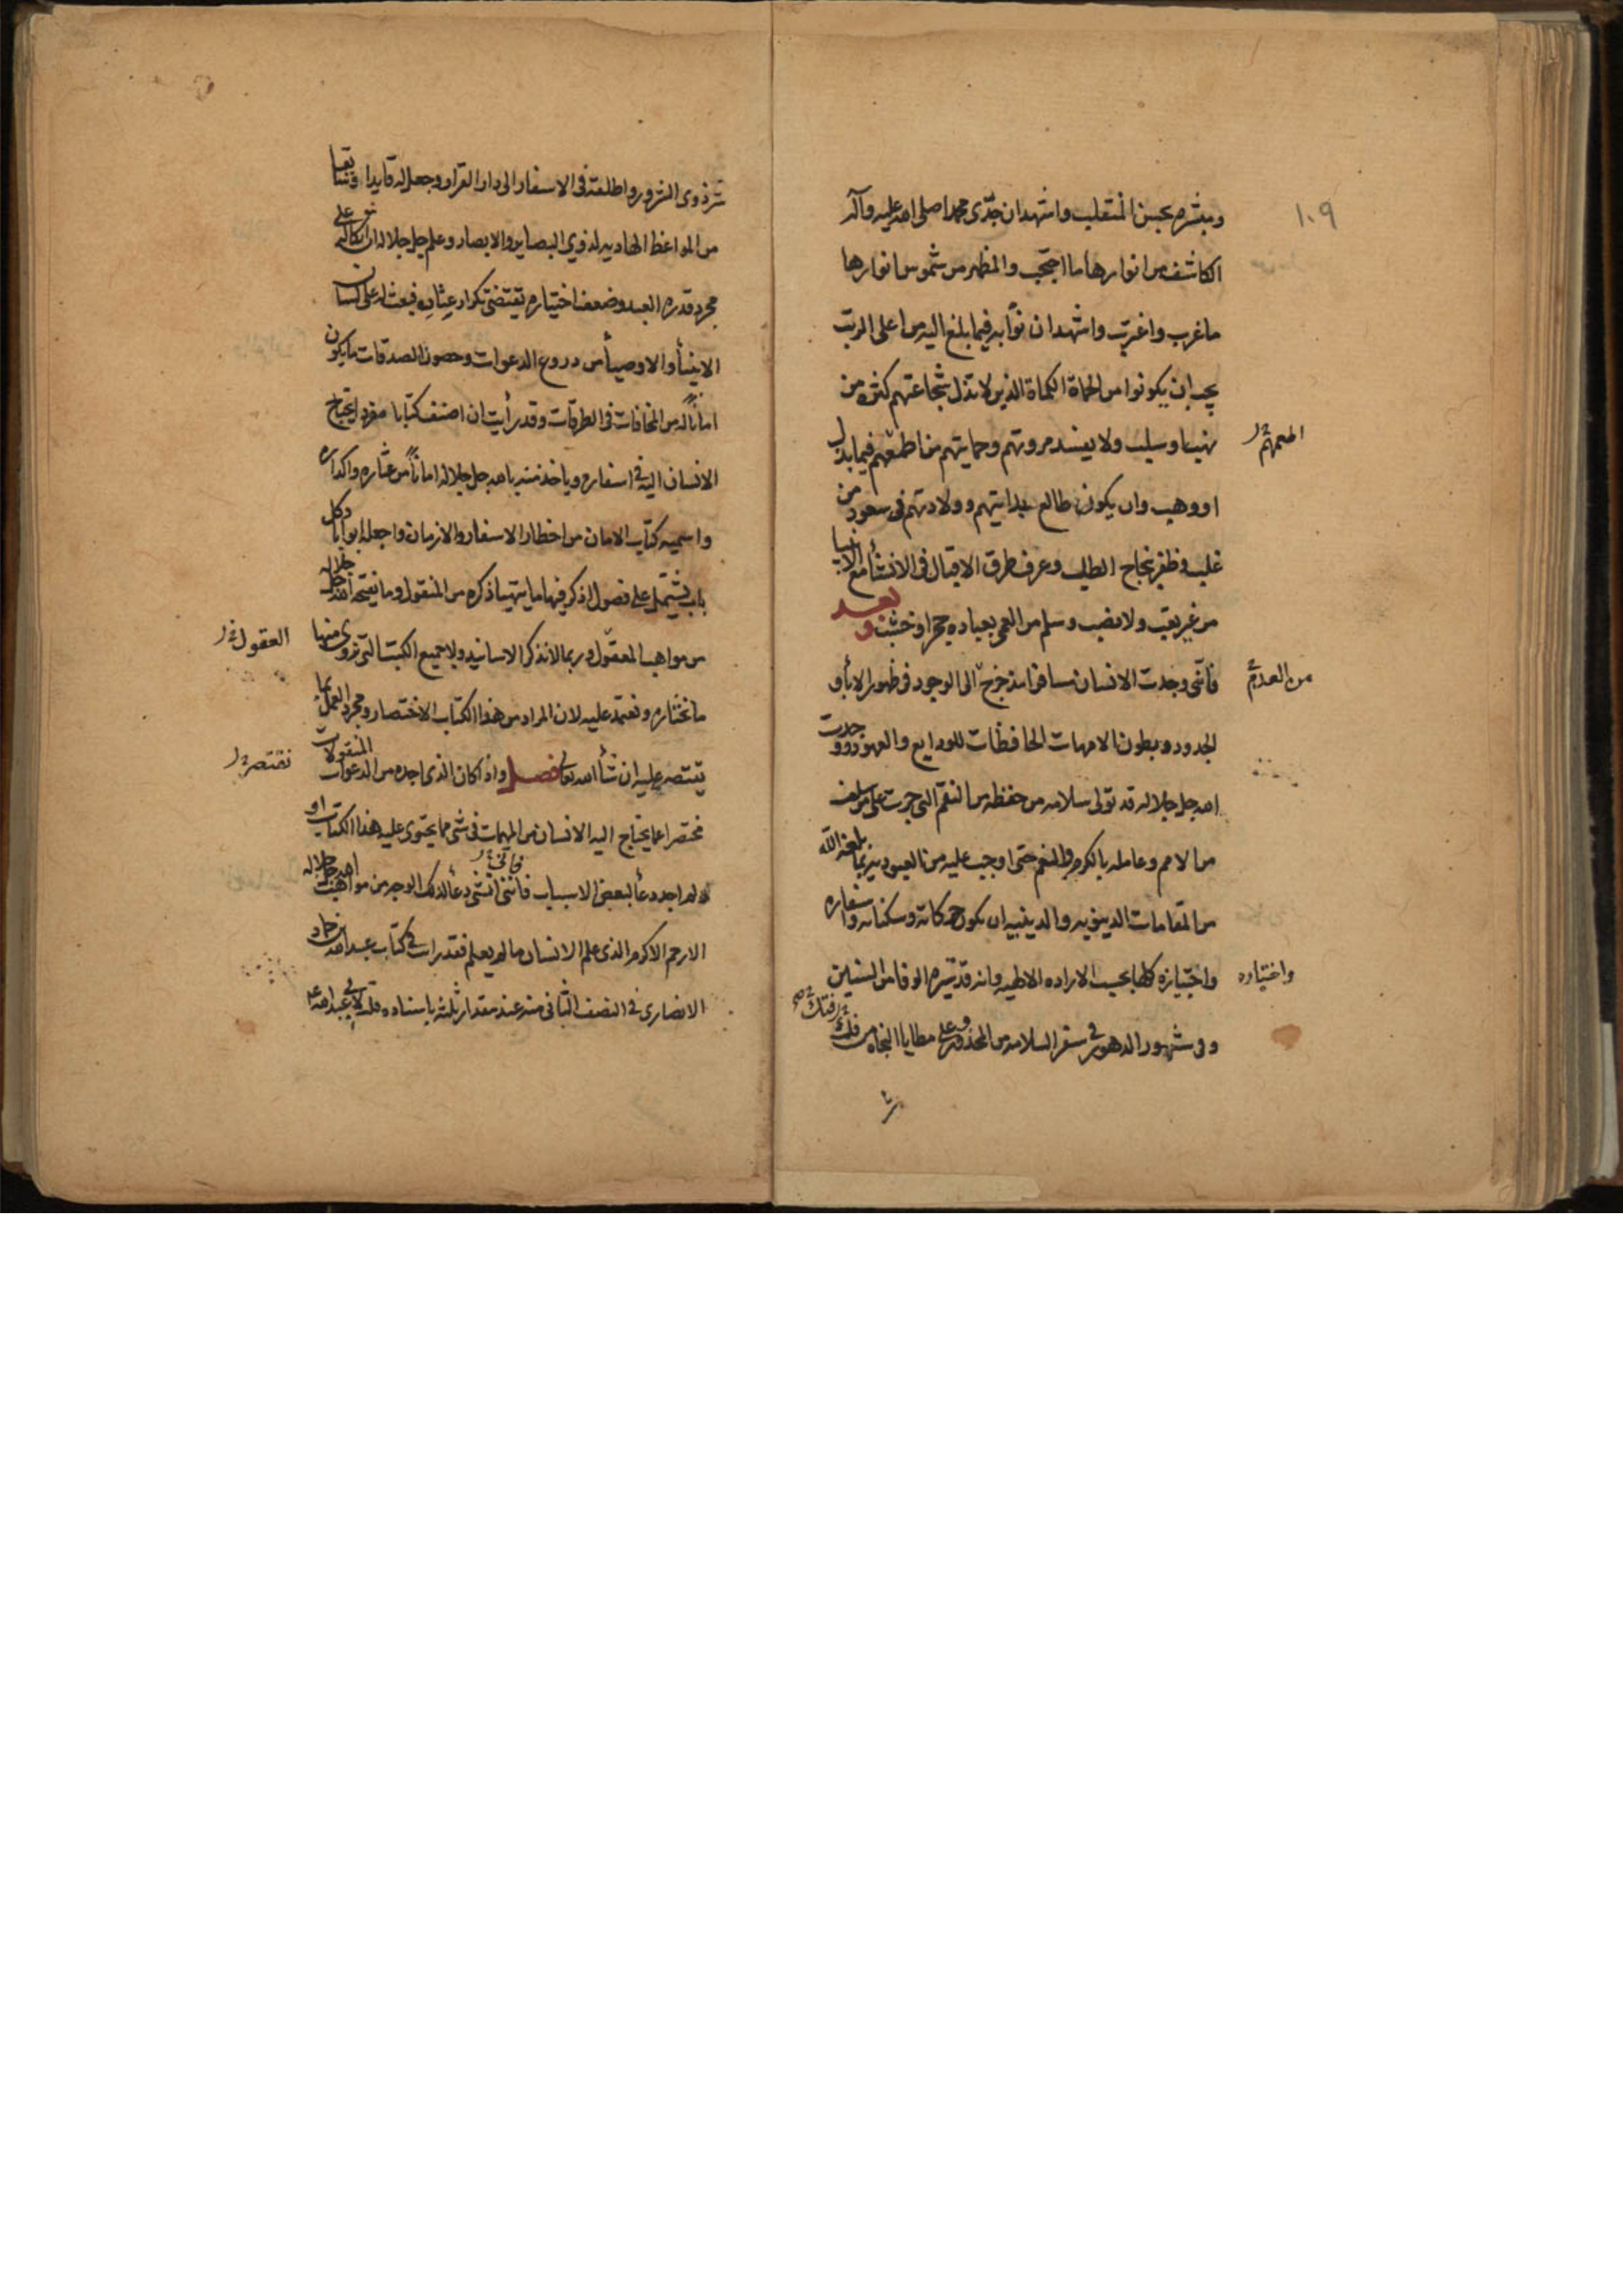 ١٠٩
ويبشره بحسن المنقلب واشهد ان جدّى محمدا صلى الله عليه وآله
الكاشف من انوارها ما احتجب والمظهر من شموس انوارها
ما غرب واغرب واشهد ان نوّابه فيما بلغ اليه من اعلى الرتب
يجب ان يكونوا من الحماة الكماة الذين لا تذل شجاعتهم كثره من
نهب وسلب ولا يفسد مروتهم وحمايتهم من اطمعهم فيما بذل
او وهب وان يكون طالع بدايتهم وولادتهم فى سعود من
غلب وظفر بنجاح الطلب وعرف طرق الاقبال فى الانشأ مع الابا
من غير تعب ولا نصب وسلم من العمى بعباده حجر او خشب و بعـد
فانّى وجدت الانسان مسافرا مذ خرج الى الوجود فى ظهور الابأ و
من العدم
الجدود وبطون الامهات الحافظات للودايع والعهود ووجدت
الله جل جلاله قد تولى سلامه من حفظه من النقم التى جرت على من سلف
من الامم وعامله بالكرم والنعم حتى اوجب عليه من العبوديه بما بلغه الله
من المقامات الدنيويه والدينيه ان يكون حركاته وسكناته واسفاره
واجتيازه كلها بحسب الاراده الالهيه وانه قد سيره الوفا من السنين
واختياره
وفى شهور الدهور فى سفر السلامه من المحذور وعلى مطايا النجاه من فلك
شر ذوى الشرور واطلعته فى الاسفار الى دار القرار وجعل له قايدا وسايقا
من المواعظ الهاديه لذوي البصاير والابصار وعلم جل جلاله ان اتكاله على
مجرد قدره العبد وضعف اختياره يقتضى تكرار عثاره فبعث له على لسان
الانبيأ والاوصيأ من دروع الدعوات وحصون الصدقات ما يكون
اماناً له من المخافات فى الطرقات وقد رأيت ان اصنف كتابا مفردا يحتاج
الانسان اليه فى اسفاره وياخذ منه بالله جل جلاله اماناً من عثاره واكداره
واسميه كتاب الامان من اخطار الاسفار والازمان واجعله ابوابا وكل
باب يشتمل على فصول اذكر فيها ما يتهيا ذكره من المنقول وما يفتحه الله جل جلاله
من مواهب المعقول وربما لا نذكر الاسانيد ولا جميع الكتب التى نروى منها
العقول
ما نختاره ونعتمد عليه لان المراد من هذا الكتاب الاختصار ومجرد العمل بما
يقتصر عليه ان شأ الله تعالى فصـل واذا كان الذى اجده من الدعوات المنقولات
نقتصر
مختصرا عما يحتاج اليه الانسان من المهمات فى شى مما يحتوى عليه هذا الكتاب او
ولم اجد دعأ لبعض الاسباب فاننى انشى دعأ لذلك الوجه من مواهب الله جل جلاله
الارحم الاكرم الذى علم الانسان ما لم يعلم فقد رات فى كتاب عبد الله بن حماد
الانصارى فى النصف الثانى منه عند مقدار ثلثه باسناده قلت لابى عبد الله ع